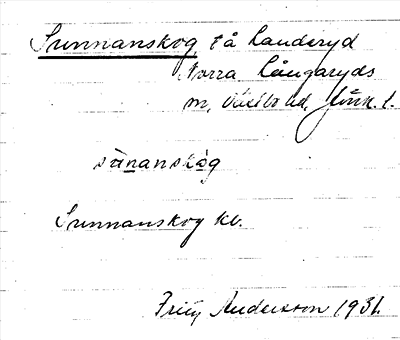 Sunnanskog, få Landeryd
Norra Långaryds
m, Västbo hd, Jönk. l.
sùnanskòg
Sunnanskog kv.
Frity Anderson 1931.